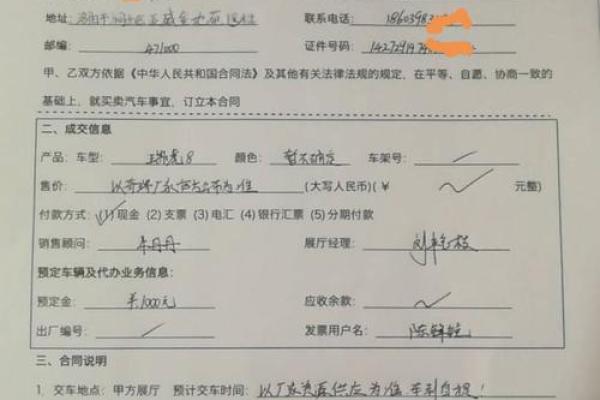 地址: 联系电话: 18603983
邮编: 471000 证件号码: 142729197
甲、乙双方依据《中华人民共和国合同法》及其他有关法律法规的规定，在平等、自愿、协商一致的
基础上，就买卖汽车事宜，订立本合同
二、成交信息
产品：车型: 瑞虎8 颜色: 暂不确定 车架号
售价: 以奇瑞厂家公布为准 (大写人民币)(￥ 元整)
付款方式: (1)现金 (2)支票 (3)电汇 (4)银行汇票 (5)分期付款
销售顾问: 丹丹 展厅经理:
预定车辆及代办业务信息:
预定金: 1000元 应收余款:
出厂编号: 发票用户名: 陈
三、合同说明
1. 交车地点: 甲方展厅 预计交车时间: 以厂家资源供应为准 车到自提!